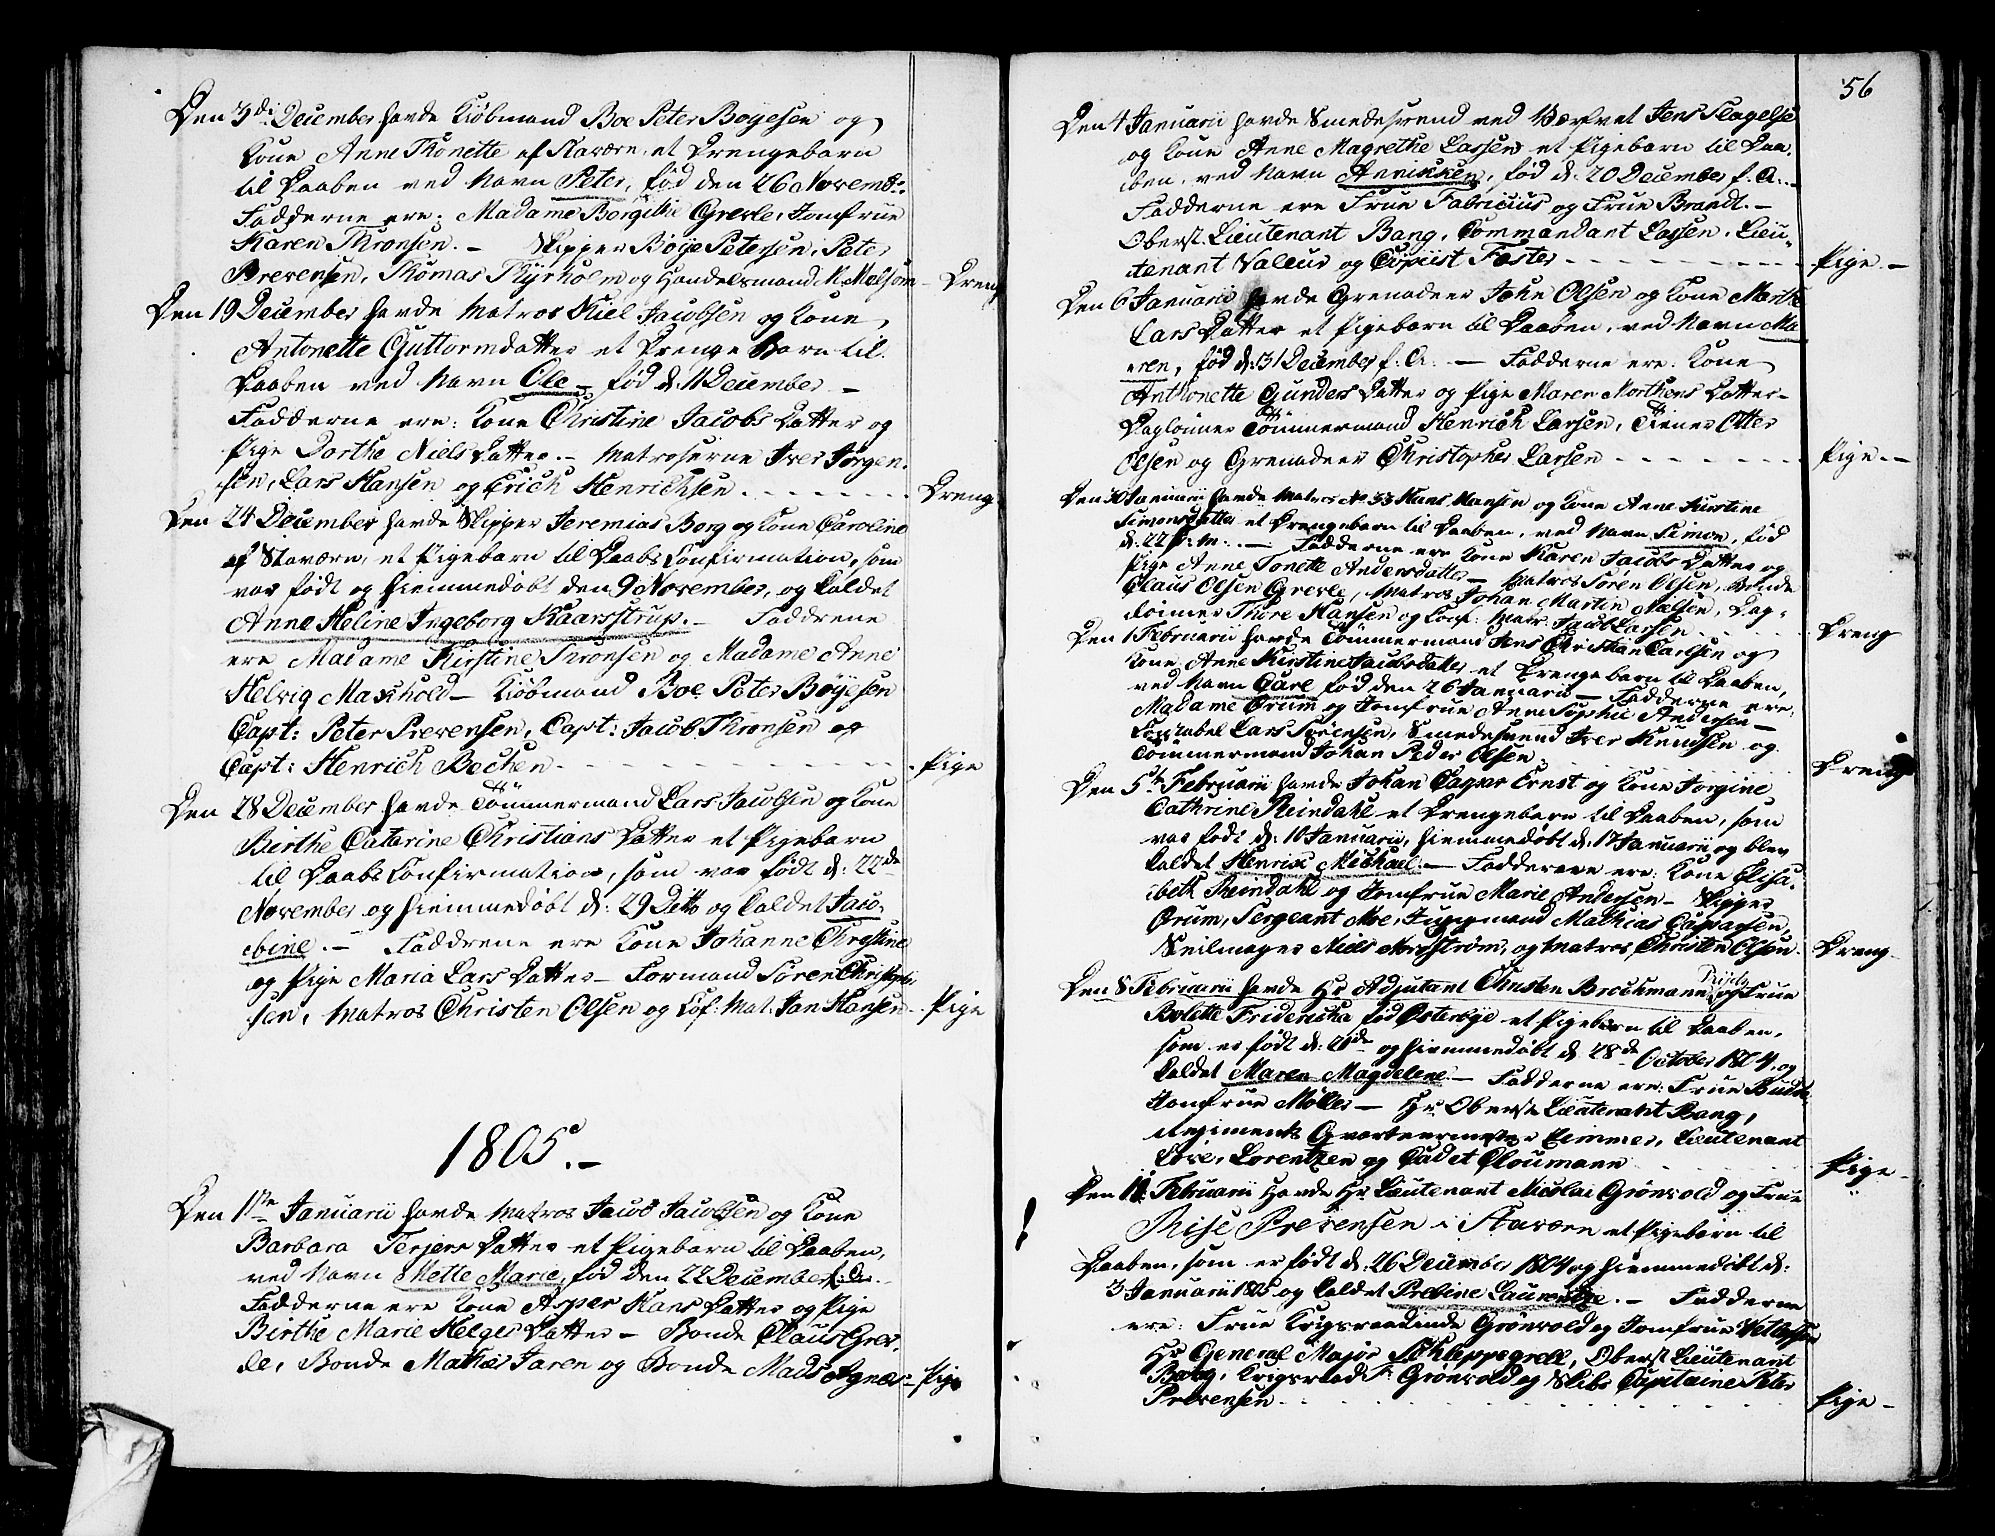 Den 3die December havde Kiöbmand Boe Peter Böyesen og
Kone Anne Thonette af Staværn, et Drengebarn
til Daaben ved Navn Peter, fød den 26 Novemb:
Fadderne ere: Madame Borgithe Grevle, Jomfrue
Karen Thronsen. – Skipper Böye Petersen, Peter
Brevensen, Thomas Thyrholm og Handelsmand M. Melsom – Dreng
Den 19 December havde Matros Niel Jacobsen og Kone
Antonette Guttormdatter et Drenge Barn til
Daaben ved Navn Ole – fød d: 11 December –
Fadderne ere: Kone Christine Jacobs Datter og
Pige Dorthe Niels Datter. – Matroserne Iver Jörgen-
sen, Lars Hansen og Erich Henrichsen – Dreng
Den 24 December havde Skipper Jeremias Borg og Kone Caroline
af Staværn, et Pigebarn til Daabs Confirmation, som
var födt og hiemmedöbt den 9 November, og kaldet
Anne Heline Ingeborg Kaarsstrup. – Faddrene
ere Madame Kirstine Thronsen og Madame Anne
Helvig Maxhold – Kiöbmand Boe Peter Böyesen
Capt: Peter Prevensen, Capt: Jacob Thronsen og
Capt: Henrich Bechen – Pige
Den 28 December havde Tömmermand Lars Jacobsen og Kone
Birthe Catarine Christians Datter et Pigebarn
til Daabs Confirmation, som var födt d: 22de
November og hiemmedöbt d: 29 Dito og kaldet Jaco-
bine. – Faddrene ere Kone Johanne Chrystine
og Pige Maria Lars Datter – Formand Sören Christopher
sen, Matros Christen Olsen og Cof: Mat: Jan Hansen – Pige
1805. –
Den 1ste Januarii havde Matros Jacob Jacobsen og Kone
Barbara Terjers Datter et Pigebarn til Daaben,
ved Navn Mette Marie, fød den 22 December f. A.
Fadderne ere Kone Asper Hans Datter og Pige
Birthe Marie Helges Datter – Bonde Claus Grev-
le, Bonde Mathis Jaren og Bonde Mads Agnæs – Pige
56
Den 4 Januarii havde Smedesvend ved Værfvet Jens Slagelse
og Kone Anne Magrethe Lassen et Pigebarn til Daa-
ben, ved Navn Annikken, fød d: 20 December f. A. –
Fadderne ere Frue Fabricius og Frue Brandt. –
Oberst Lieutenant Bang, Commandant Lassen, Lieu-
tenant Valeur og Copiist Foster – Pige –
Den 6 Januarii havde Grenadeer John Olsen og Kone Marthe
Lars Datter et Pigebarn til Daaben, ved Navn Ma
eren, fød d: 31 December f. A. – Fadderne ere: Kone
Anthonette Gunders Datter og Pige Maren Morthens Datter –
Daglönner Tömmermand Henrich Larsen, Tiener Otter
Olsen og Grenadeer Christopher Larsen – Pige –
Den 30 Januarii havde Matros No 33 Hans Hansen og Kone Anne Kirstine
Simonsdatter et Drengebarn til Daaben, ved Navn Simon, fød
d: 22 h: m: – Fadderne ere Kone Karen Jacobs Datter og
Pige Anne Tonette Andersdatter – Matros Sören Olsen, Bonde
Claus Olsen Grevle, Matros Johan Martin Nielsen, Dag-
loiner Thore Hansen og Cof: Matr: Jacob Larsen – Dreng
Den 1 Februarii havde Tömmermand Jens Christian Carlsen og
Kone Anne Kirstine Jacobsdatter et Drengebarn til Daaben,
ved Navn Carl fød den 26 Januarii – Fadderne ere:
Madame Örum og Jomfrue Anne Sophie Andersen –
Constabel Lars Sörensen, Smedesvend Iver Knudsen og
Tömmermand Johan Peder Olsen – Dreng
Den 5te Februarii havde Johan Casper Ernst og Kone Jorgine
Cathrine Reindahl et Drengebarn til Daaben, som
var födt d: 10 Januarii, hiemmedöbt d: 17 Januarii og blev
kaldet Henrik Michael. – Fadderne ere: Kone Elisa-
beth Reindahl og Jomfrue Marie Andersen – Skipper
Örum, Sergeant Moe, Mathias Casparsen,
Seilmager Niels Nordström, og Matros Christen Olsen – Dreng
Den 8 Februarii havde Hr Adjutant Christen Brockmann og Frue
Bolette Fridericha fød Österbye et Pigebarn til Daaben,
som er födt d: 21de og hiemmedöbt d: 28de October 1804, og
kaldet Maren Magdelene. – Fadderne ere: Frue Budde
Jomfrue Möller – Hr Oberst Lieutenant Bang,
Regiments Qvarteermester Zimmer, Lieutenant
Löve, Lorentzen og Cadet Cloumann – Pige –
Den 11 Februarii havde Hr Lieutenant Nicolai Grönvold og Frue
Rise Prevensen i Staværn et Pigebarn til
Daaben, som er födt d: 26 December 1804 og hiemmedöbt d:
3 Januarii 1805 og kaldet Prebine Laurentze. – Fadderne
ere: Frue Krigsraadinde Grönvold og Jomfrue Wetlesen
Hr General Major Schleppegrell, Oberst Lieutenant
Bang, Krigsraad F: Grönvold og Skibs Capitaine Peter
Prevensen – Pige –